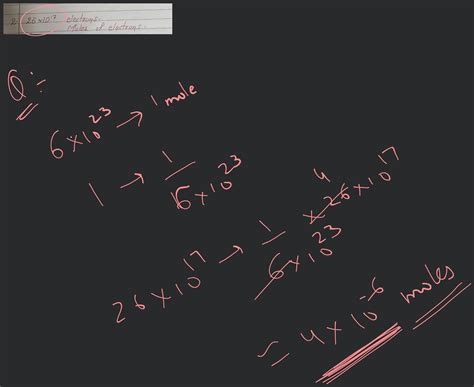 26×10¹⁷ electrons.
Moles of electrons.
Q:-
6×10²³ → 1 mole
1 → 1/6×10²³
26×10¹⁷ → 1/6×10²³ × 26×10¹⁷ 4
≈ 4×10⁻⁶ moles